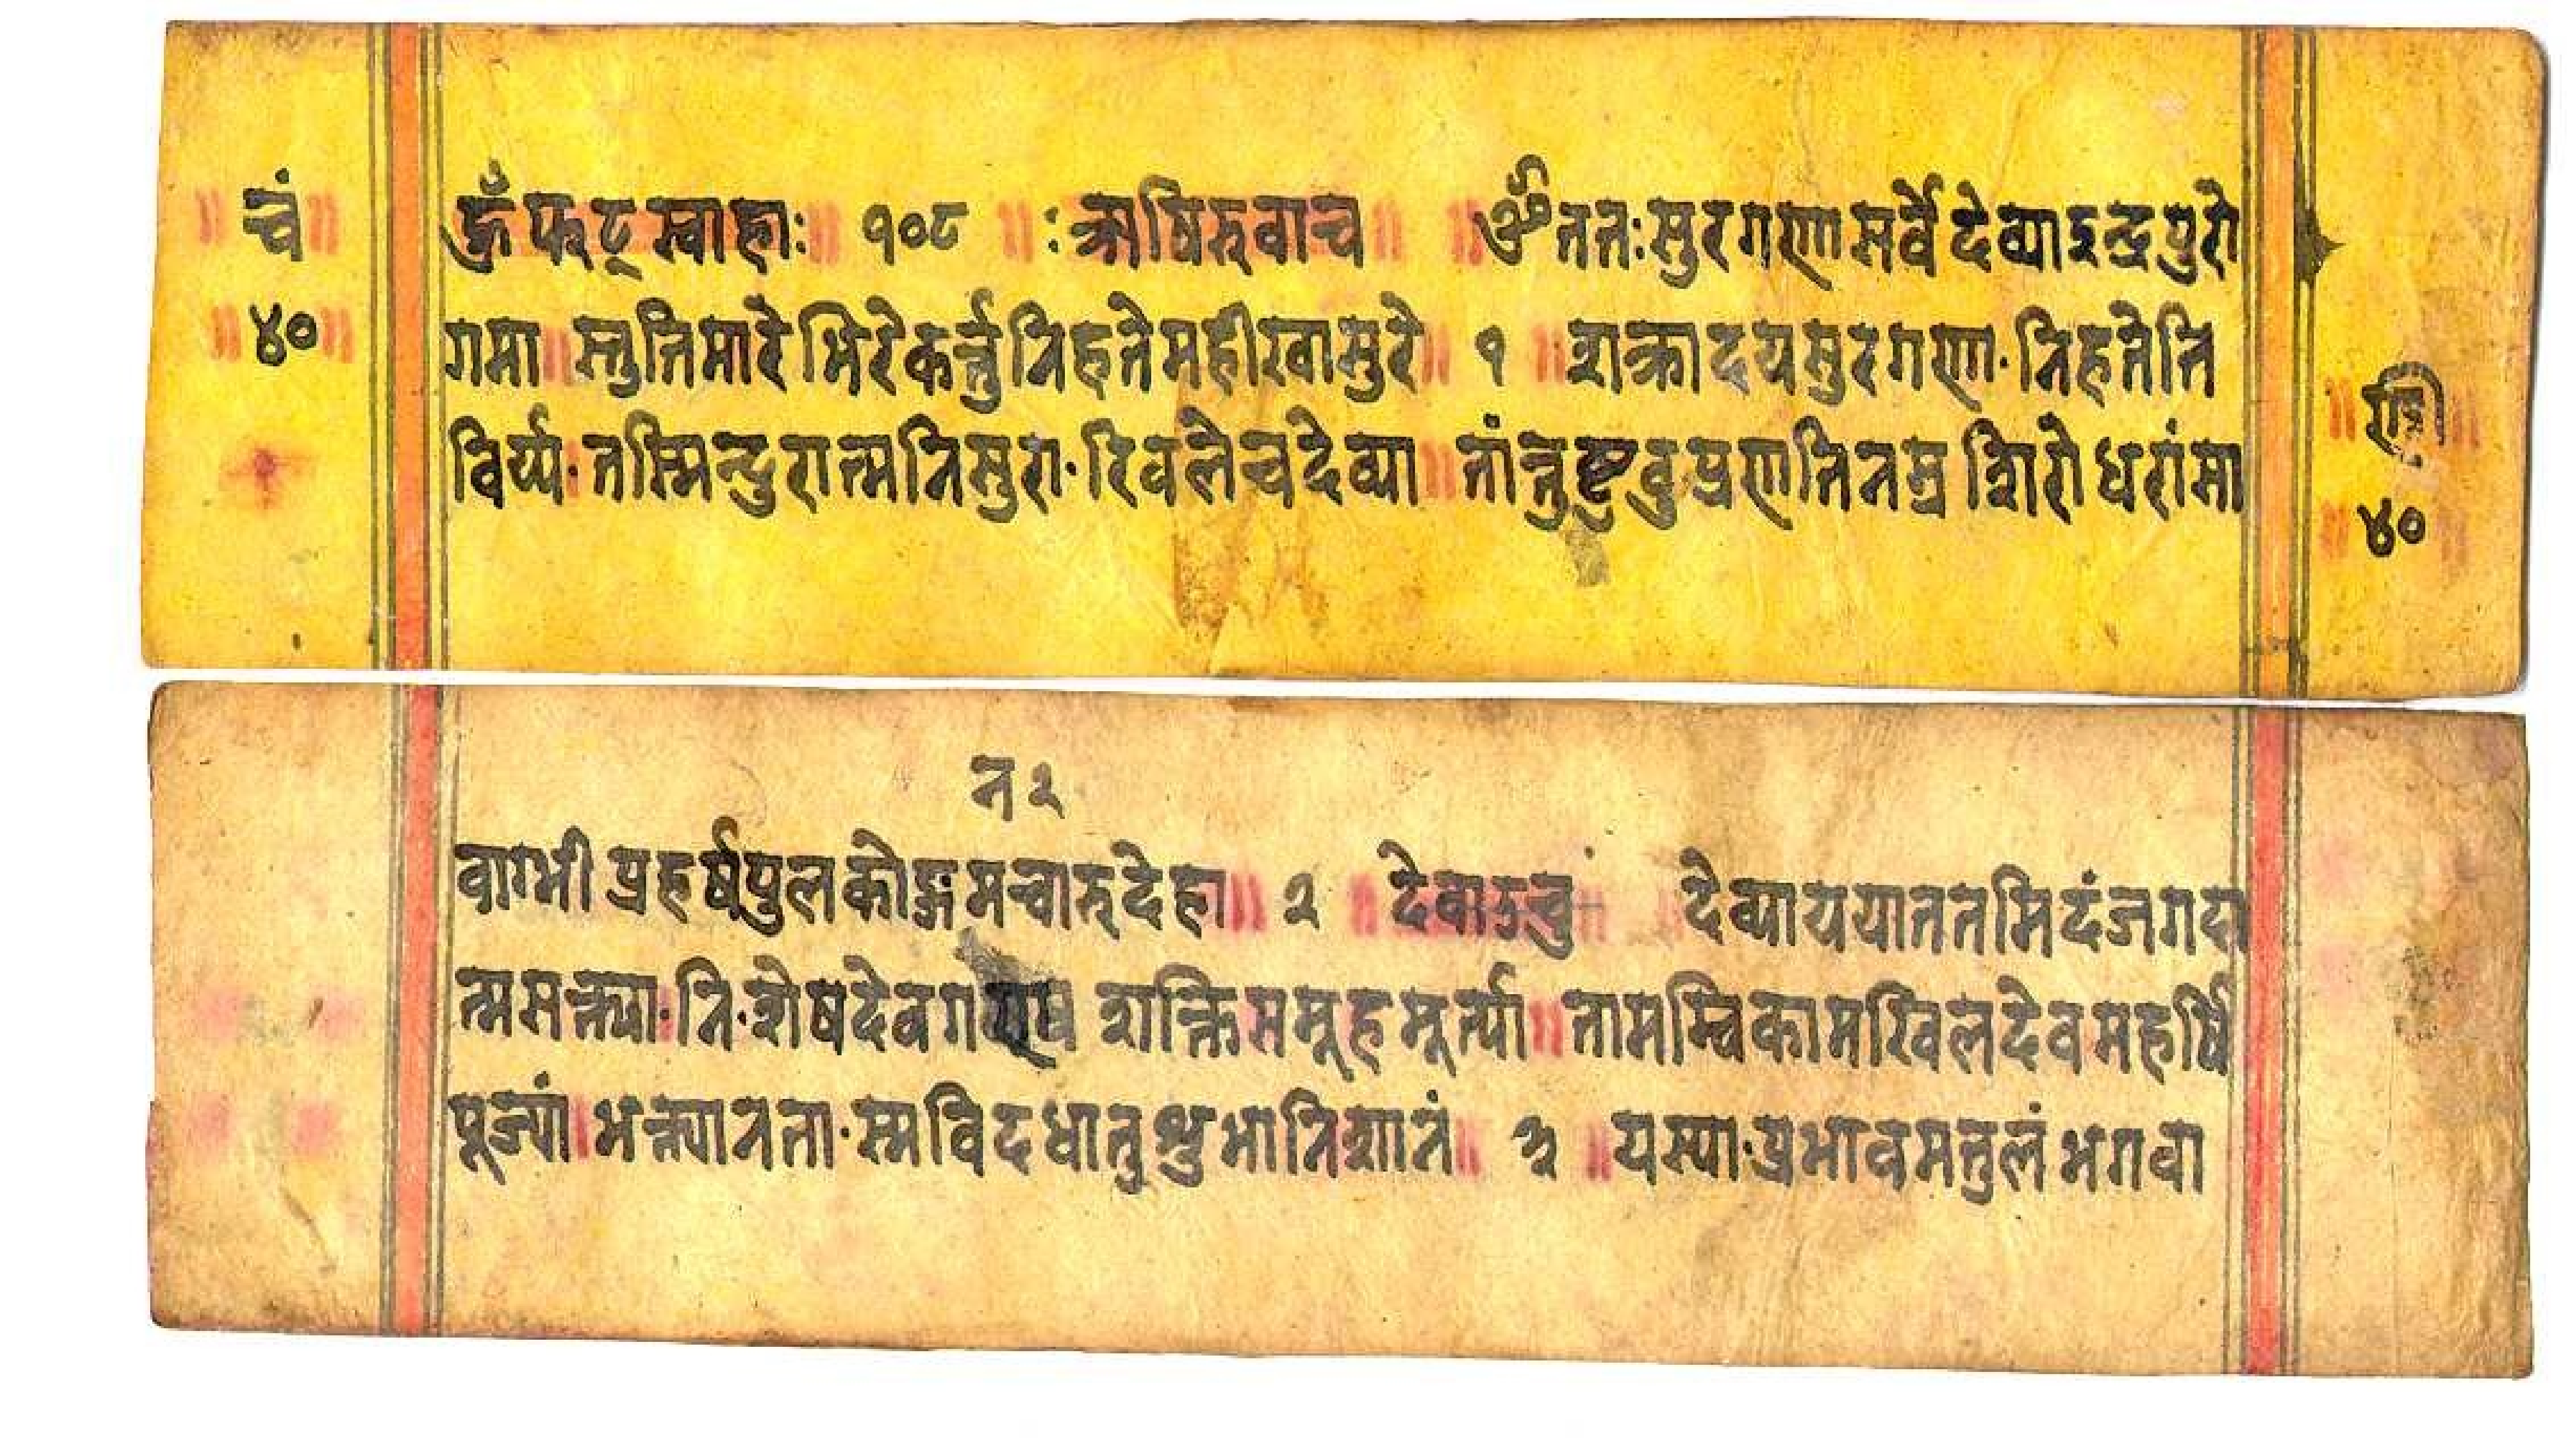 ॥ चं ॥
॥ ४० ॥
हूँ फट् स्वाहाः ॥ १०८ ॥ : ऋषिरुवाच ॥ ॥ ॐ ततः सुरगणा सर्वे देव्या इन्द्रपुरो
गमा ॥ स्तुतिमारेभिरे कर्त्तुं निहते महीखासुरे ॥ १ ॥ शक्रादयसुरगणाः निहतेति
विर्य्यः तस्मिन्दुरात्मनिसुराः रिवलेचदेव्या ॥ तांतुष्टुवुप्रणतिनम्र शिरोधरांमा
॥ ॥
॥ ४० ॥
न २
वाग्भी प्रहर्षपुलकोद्गमचारुदेहा ॥ २ ॥ देवाउचु ॥ देव्याययाततमिदंजगदा
त्मसक्त्याः निःशेषदेवग शक्तिसमूहमूर्त्या ॥ तामम्विकामखिलदेवमहर्षि
पूज्यां । भक्त्यानताः स्मविदधातुशुभानिशानं ॥ ३ ॥ यस्याः प्रभावमतुलं भगवा